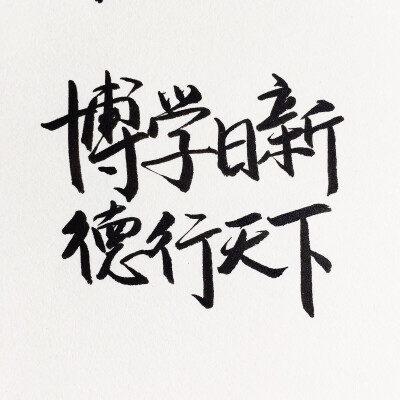 博学日新
德行天下